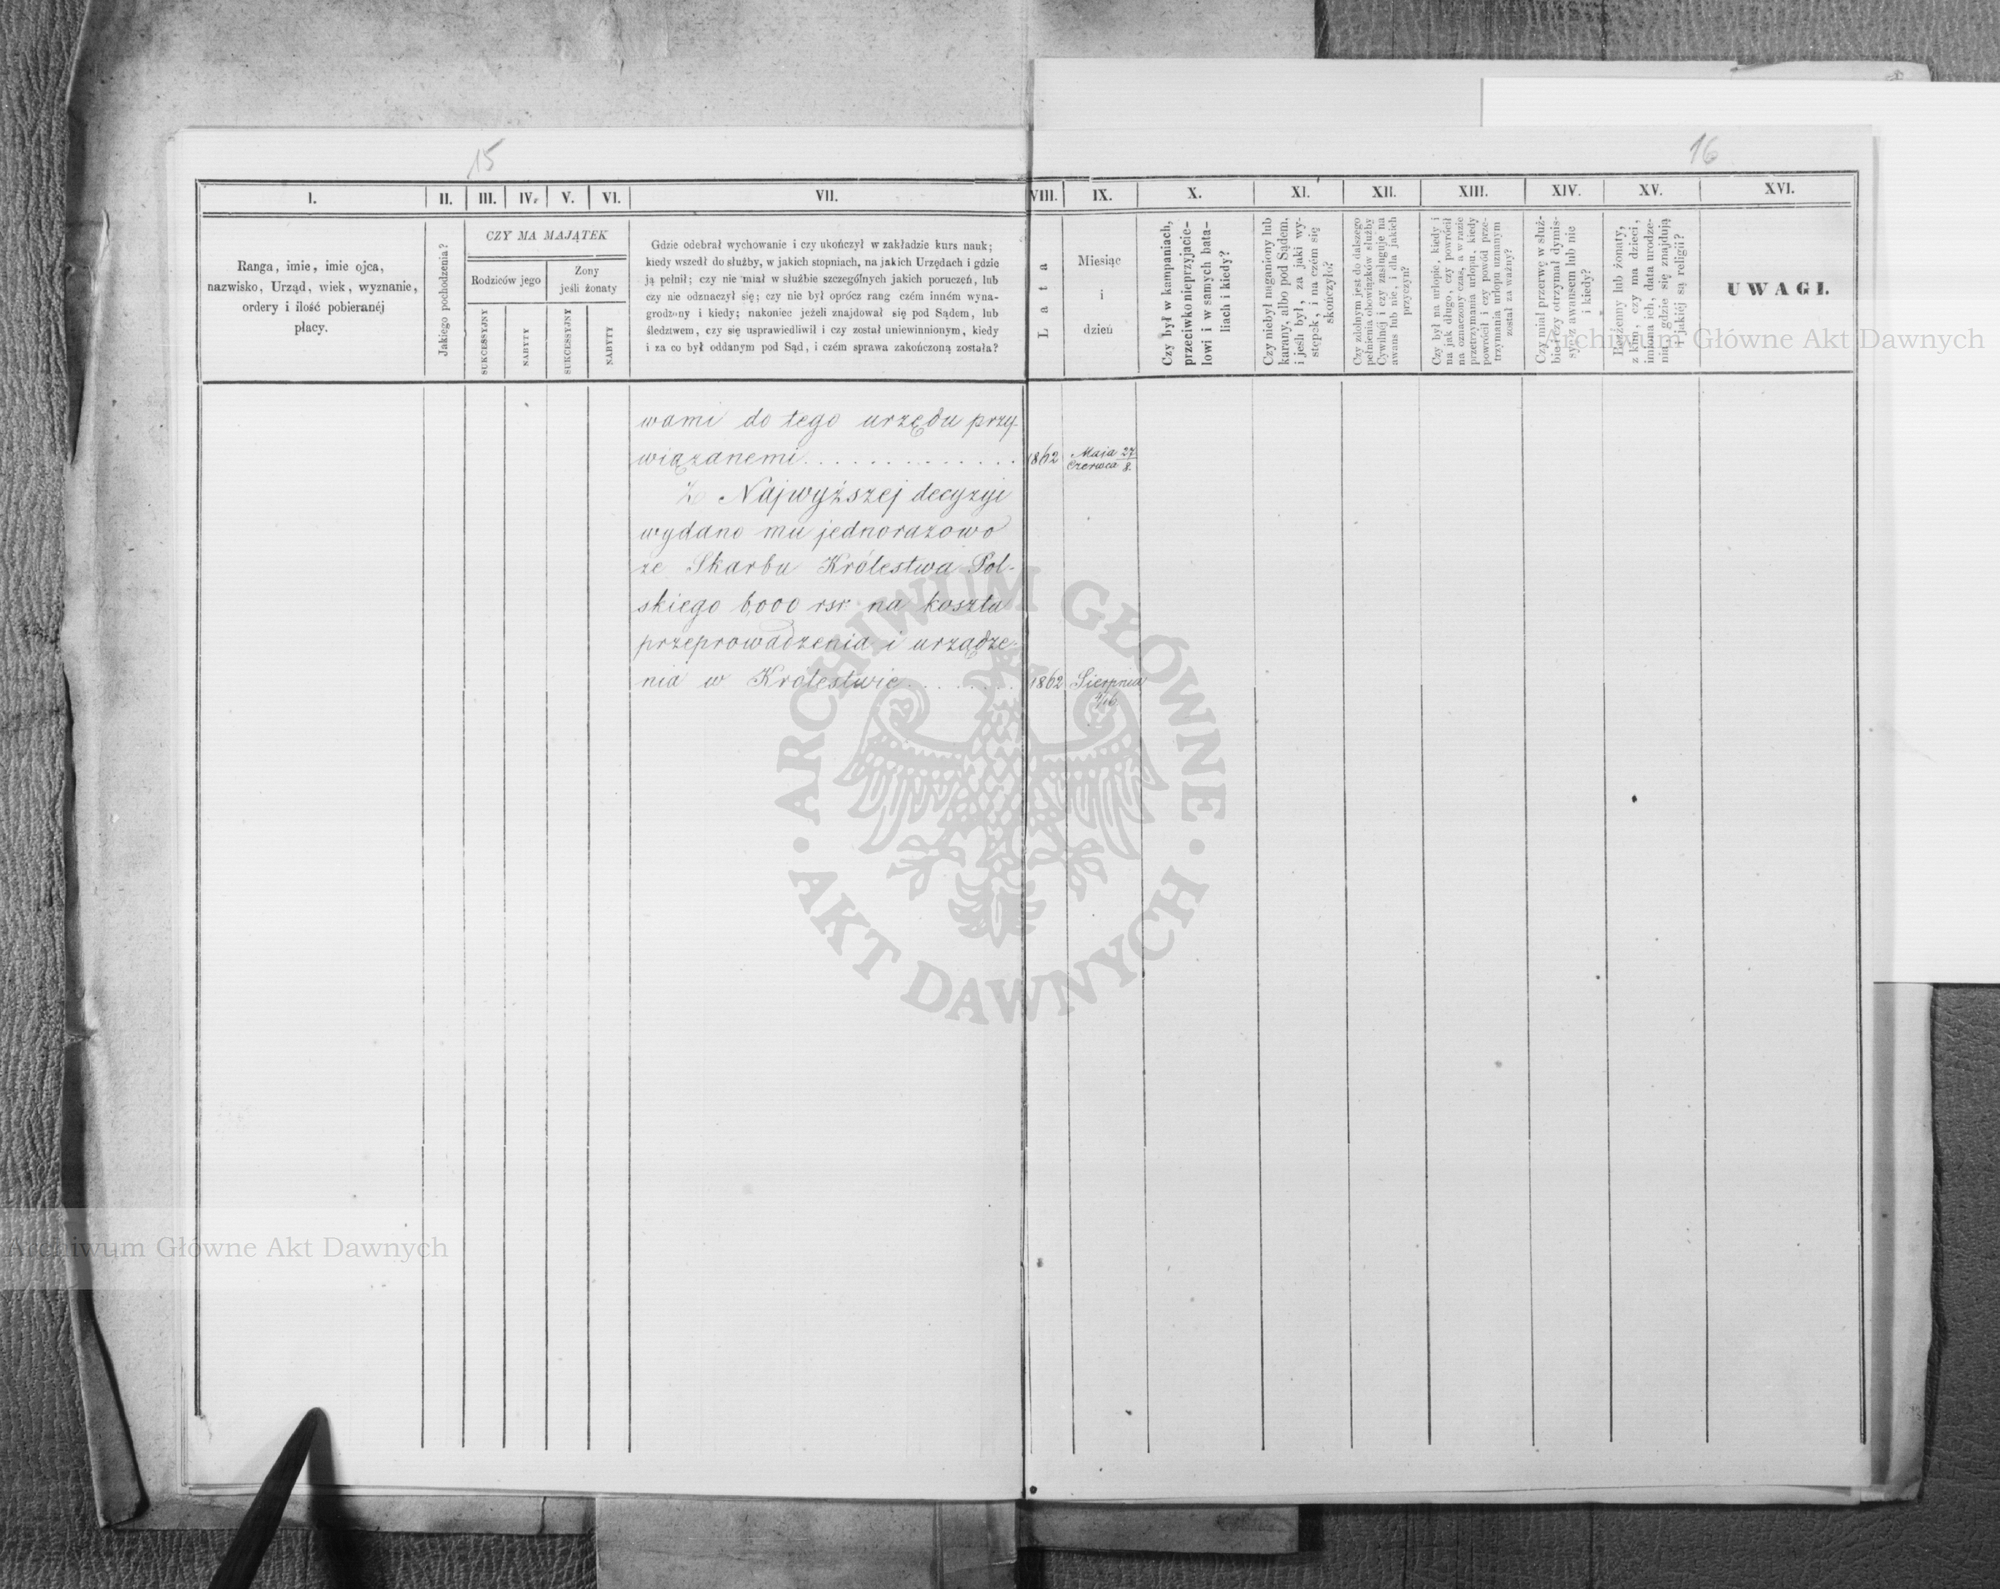 15
16
I.
II.
III.
IV.
V.
VI.
VII.
VIII.
IX.
X.
XI.
XII.
XIII.
XIV.
XV.
XVI.
Ranga, imie, imie ojca,
nazwisko, Urząd, wiek, wyznanie,
ordery i ilość pobieranéj
płacy.
Jakiego pochodzenia?
CZY MA MAJĄTEK
Rodziców jego
Żony
jeśli żonaty
SUKCESSYJNY
NABYTY
SUKCESSYJNY
NABYTY
Gdzie odebrał wychowanie i czy ukończył w zakładzie kurs nauk;
kiedy wszedł do służby, w jakich stopniach, na jakich Urzędach i gdzie
ją pełnił; czy nie miał w służbie szczególnych jakich poruczeń, lub
czy nie odznaczył się; czy nie był oprócz rang czém inném wyna-
grodzony i kiedy; nakoniec jeżeli znajdował się pod Sądem, lub
śledztwem, czy się usprawiedliwił i czy został uniewinnionym, kiedy
i za co był oddanym pod Sąd, i czém sprawa zakończoną została?
Lata
Miesiąc
i
dzień
Czy był w kampaniach,
przeciwko nieprzyjacie-
lowi i w samych bata-
liach i kiedy?
Czy niebył naganiony lub
karany, albo pod Sądem,
i jeśli był, za jaki wy-
stępek, i na czém się
skończyło?
Czy zdolnym jest do dalszego
pełnienia obowiązków służby
Cywilnéj i czy zasługuje na
awans lub nie, i dla jakich
przyczyn?
Czy był na urlopie, kiedy i
na jak długo, czy powrócił
na oznaczony czas, a w razie
przetrzymania urlopu, kiedy
powrócił i czy powód prze-
trzymania urlopu uznanym
został za ważny?
Czy miał przerwę w służ-
bie, czy otrzymał dymis-
syą z awansem lub nie
i kiedy?
Bezżenny lub żonaty,
z kim, czy ma dzieci,
imiona ich, data urodze-
nia, gdzie się znajdują
i jakiéj są religii?
UWAGI.
wami do tego urzędu przy-
wiązanemi
1862
Maja 27
Czerwca 8.
Z Najwyższej decyzyi
wydano mu jednorazowo
ze Skarbu Królestwa Pol-
skiego 6,000 rsr na koszta
przeprowadzenia i urządze-
nia w Królestwie
1862
Sierpnia
4/16
ARCHIWUM GŁÓWNE
AKT DAWNYCH
Archiwum Główne Akt Dawnych
Archiwum Główne Akt Dawnych